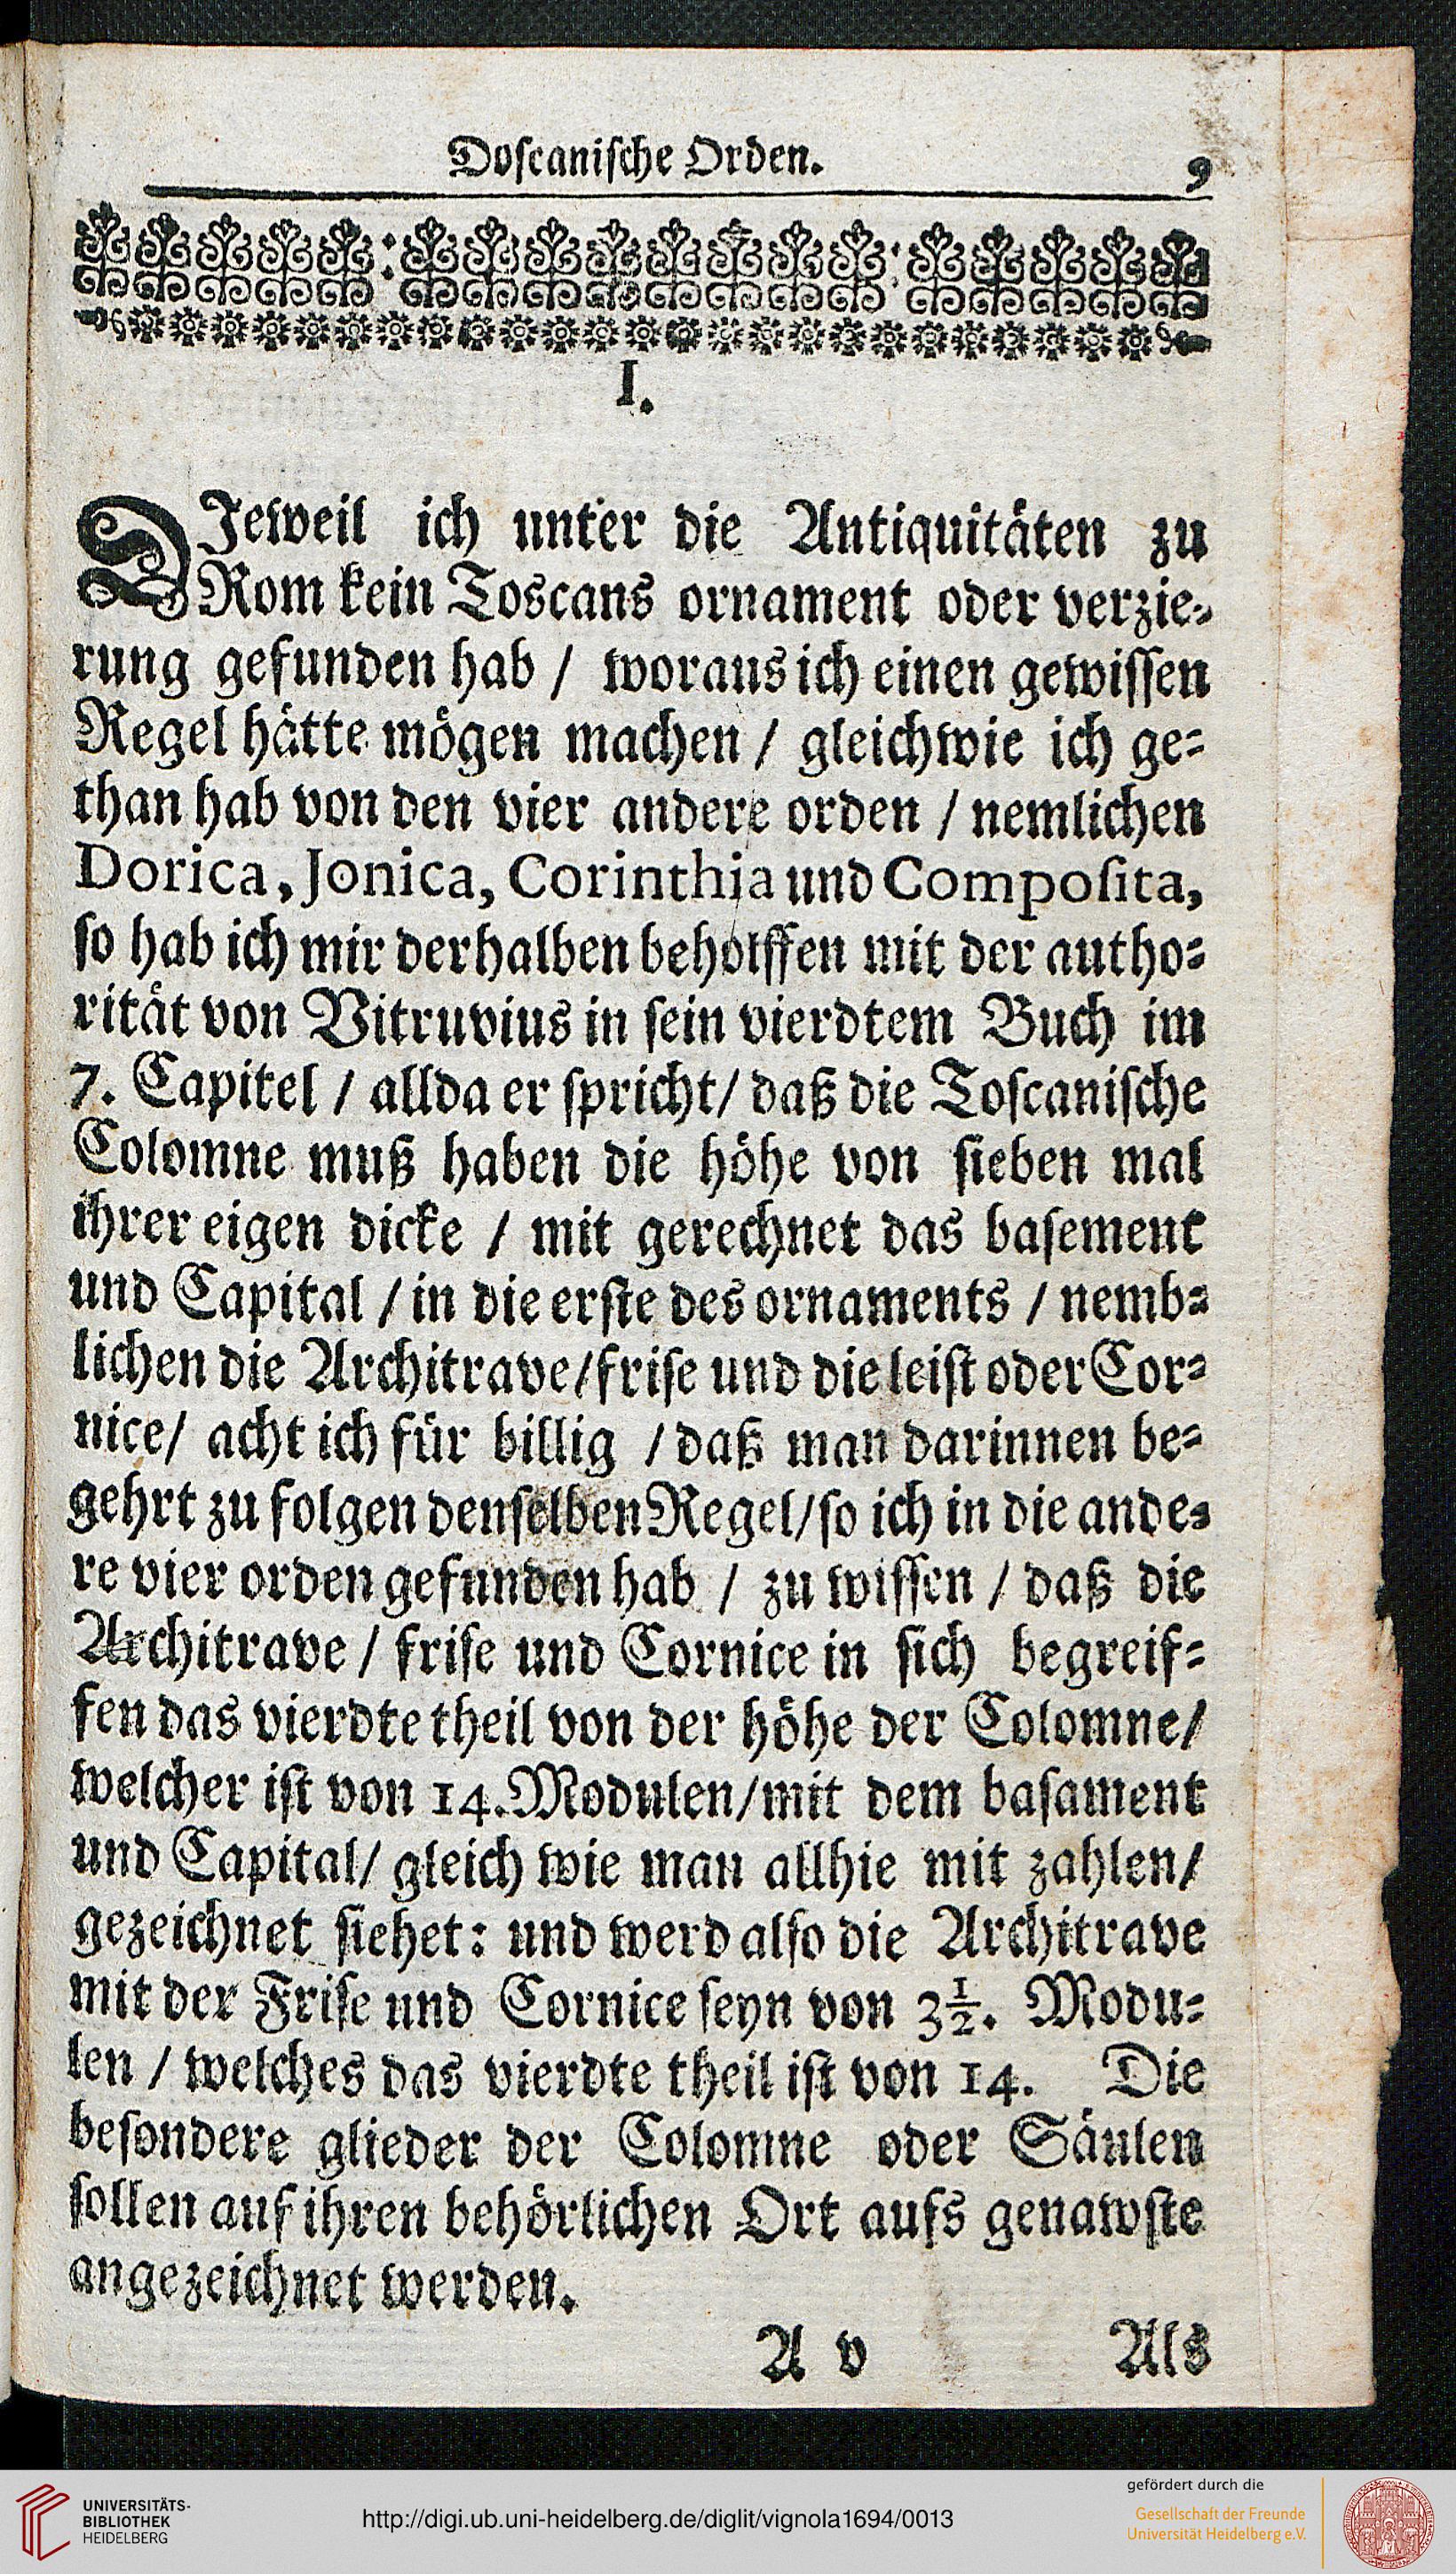 Doſcaniſche Orden. 9
I.
DJeweil ich unter die Antiquitäten zu
Rom kein Toscans ornament oder verzie-
rung gefunden hab / woraus ich einen gewiſſen
Regel hätte mögen machen / gleichwie ich ge-
than hab von den vier andere orden / nemlichen
Dorica, Jonica, Corinthia und Compoſita,
ſo hab ich mir derhalben beholffen mit der autho-
rität von Vitruvius in ſein vierdtem Buch im
7. Capitel / allda er ſpricht / daß die Toſcaniſche
Colomne muß haben die höhe von ſieben mal
ihrer eigen dicke / mit gerechnet das baſement
und Capital / in die erſte des ornaments / nemb-
lichen die Architrave / friſe und die leiſt oder Cor-
nice / acht ich für billig / daß man darinnen be-
gehrt zu folgen denſelben Regel / ſo ich in die ande-
re vier orden gefunden hab / zu wiſſen / daß die
Architrave / friſe und Cornice in ſich begreif-
fen das vierdte theil von der höhe der Colomne /
welcher iſt von 14. Modulen / mit dem baſament
und Capital / gleich wie man allhie mit zahlen /
gezeichnet ſiehet: und werd alſo die Architrave
mit der Friſe und Cornice ſeyn von 3½. Modu-
len / welches das vierdte theil iſt von 14. Die
beſondere glieder der Colomne oder Säulen
ſollen auf ihren behörlichen Ort aufs genawſte
angezeichnet werden.
A v Als
UNIVERSITÄTS-
BIBLIOTHEK
HEIDELBERG
http://digi.ub.uni-heidelberg.de/diglit/vignola1694/0013
gefördert durch die
Gesellschaft der Freunde
Universität Heidelberg e.V.